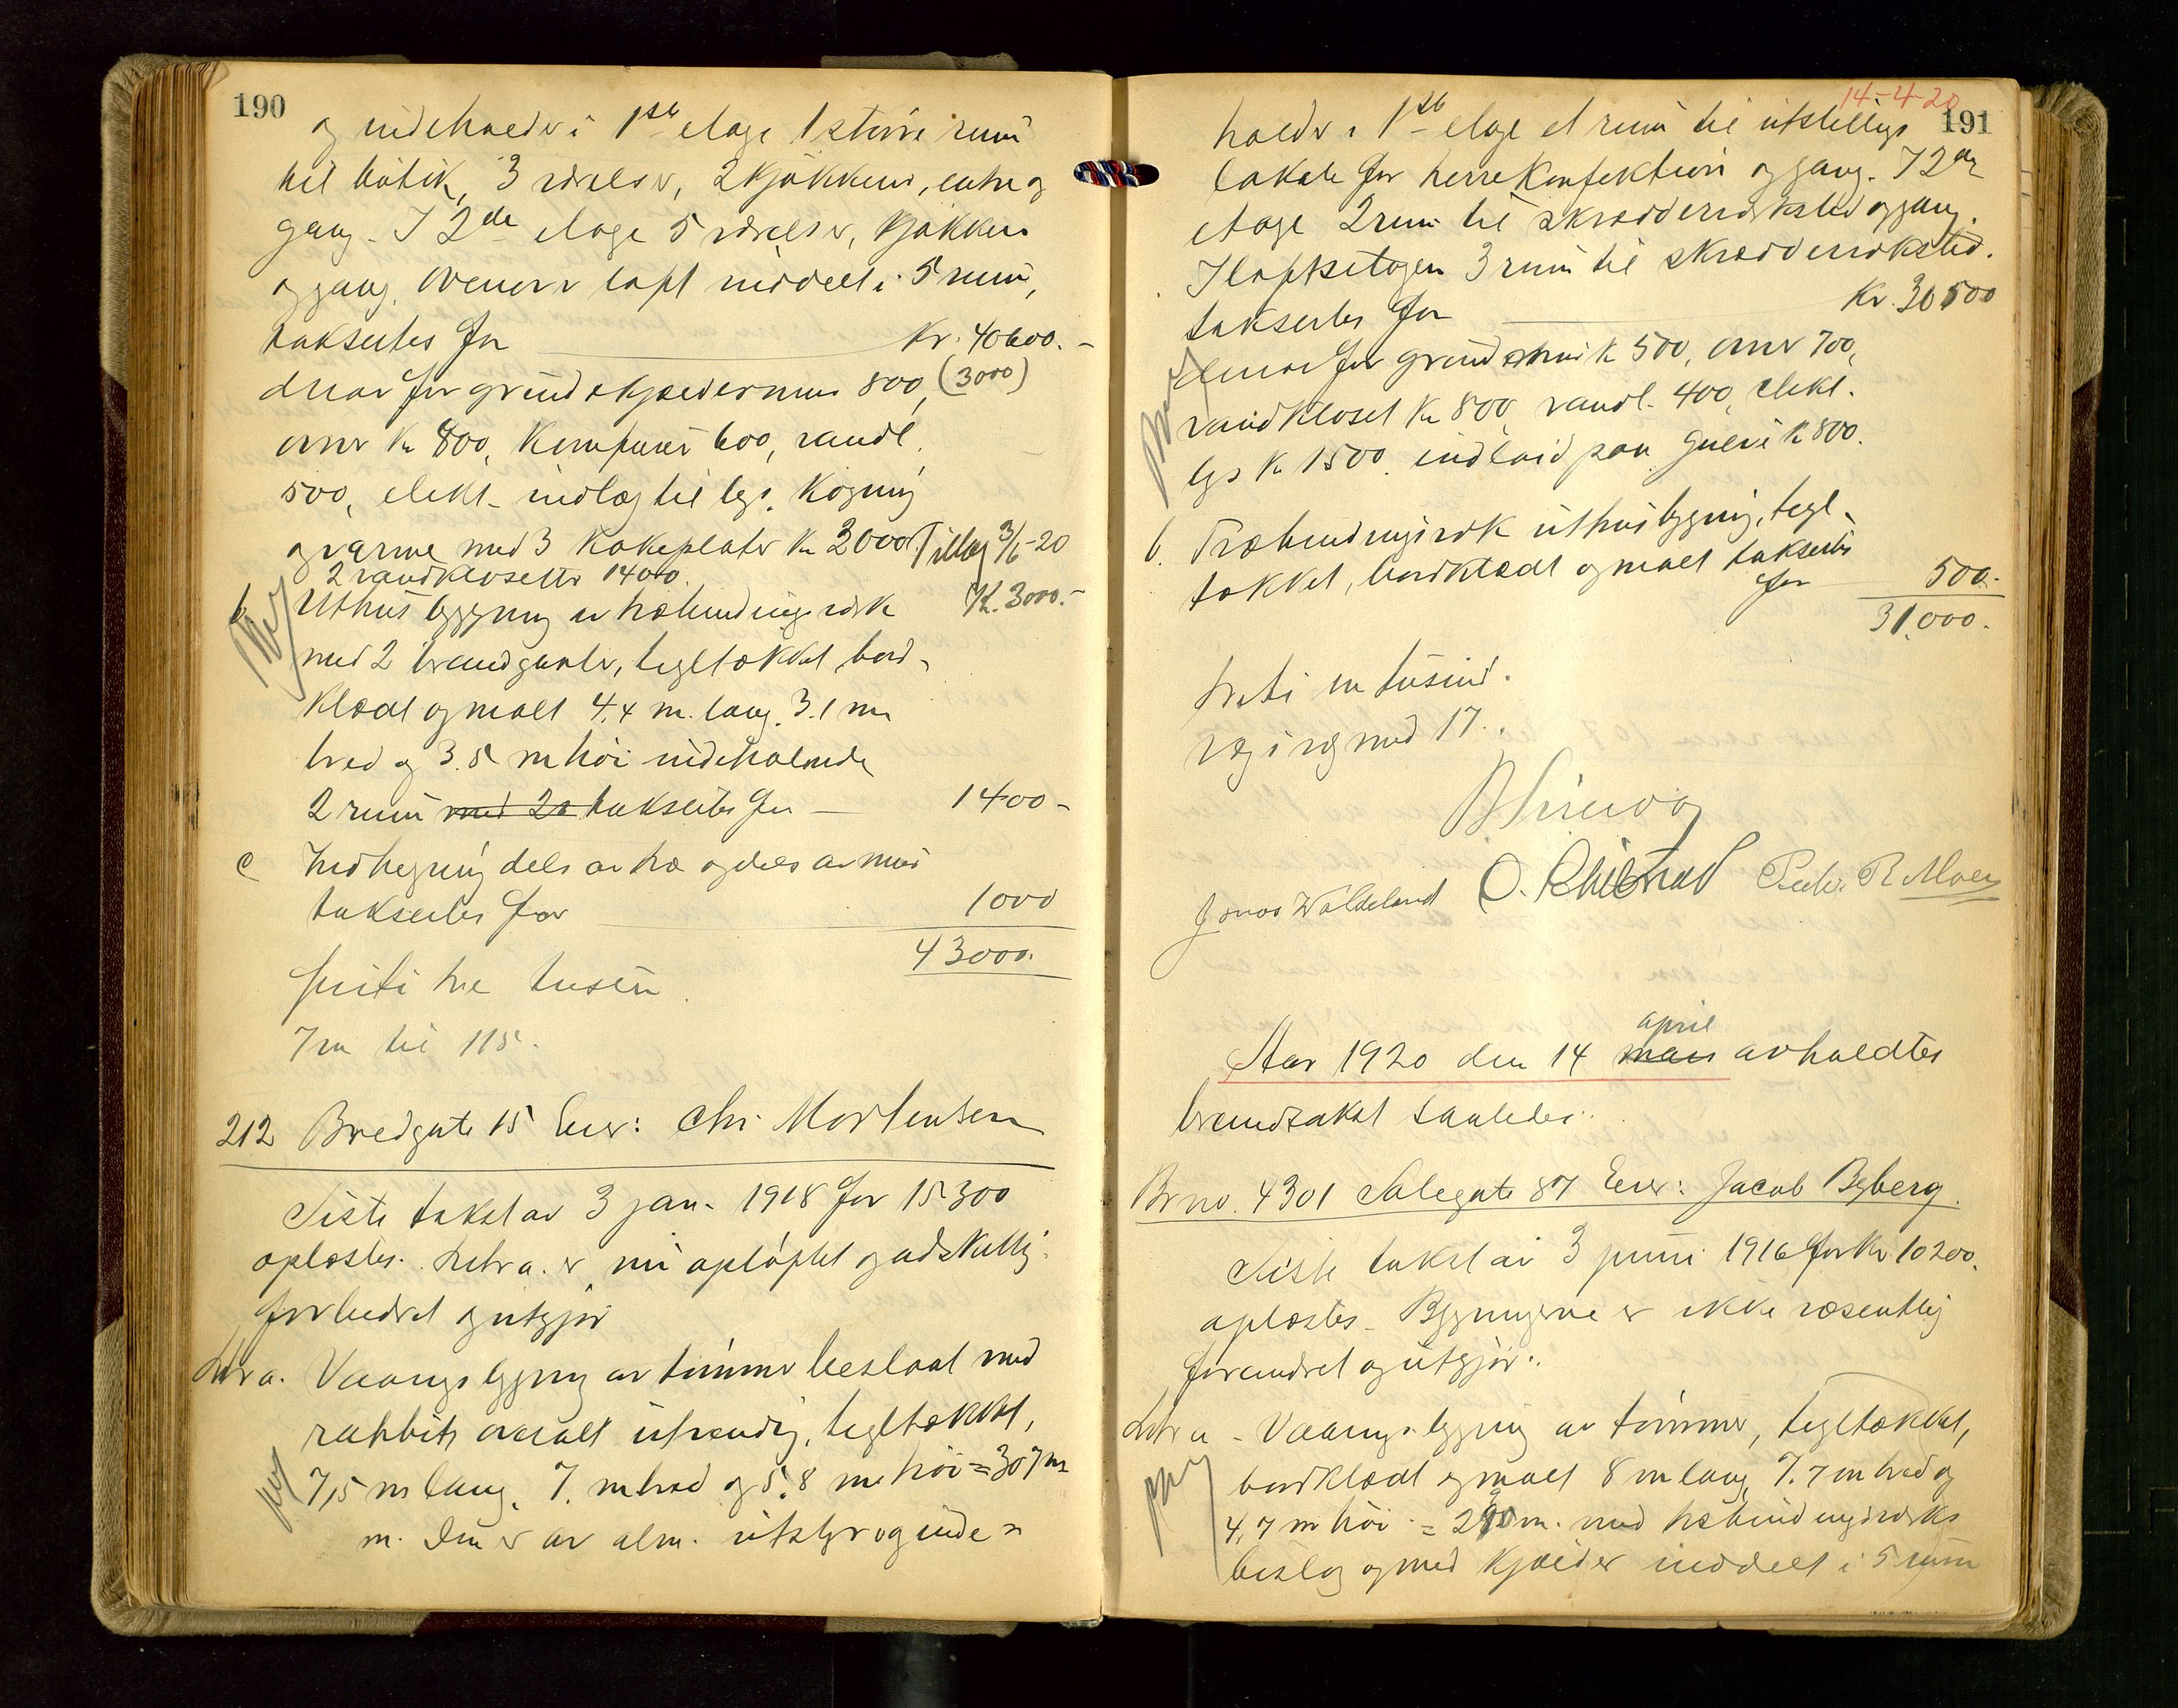 190
og indeholder i 1ste etage 1 større rum
til butik, 3 værelser, 2 kjøkkener, entre og
gang. I 2de etage 5 værelser, kjøkken
og gang. Ovenover loft inddelt i 5 rum,
takseertes for Kr. 40600.-
derav for grund & kjældermur 800, (3000)
ovner kr 800, komfurer 600, vandl.
500, elekt. indlæg til lys, kogning
og varme med 3 kokeplater kr 2000. Tillæg 3/6-20
2 vandklosetter 1400. Kr. 3000.-
b. Uthusbygning av træbindingsverk
med 2 brandgavler, tegltækket, bord-
klædt og malt 4,4 m. lang, 3.1 m
bred og 3.5 m høi indeholende
2 rum med 2 takseertes for 1400-
c Indhegning dels av træ og dels av mur
takseertes for 1000
43000.
firti tre tusen
7 m til 115.
212 Bredgate 15 Eier: Chr. Mortensen
Siste takst av 3 jan. 1918 for 15300
oplæstes. Litra a. er nu opløftet og adskillig
forbedret og utgjør
Litra a. Vaaningsbygning av tømmer beslaat med
rabbits overalt utvendig, tegltækket,
7,5 m lang, 7. m bred og 5,8 m høi = 307 m
m. Den er av alm. utstyr og inde=
14-4-20
191
holder i 1ste etage et rum til utstillings
lokale for herrekonfektion og gang. I 2den
etage 2 rum til skrædderverksted og gang.
I loftsetagen 3 rum til skrædderverksted.
takseertes for Kr. 30500
derav for grundmur k 500, ovner 700,
vandkloset kr 800, vandl. 400, elekt.
lys k 1500.
b. Træbindingsverk uthusbygning, tegl-
tækket, bordklædt og malt takseertes
for 500.-
31.000.
treti en tusind.
væg i væg med 17.
Jonas Wålseland
Aar 1920 den 14 mars april avholdtes
brandtakst saaledes:
Br no. 4301 Solegate 87 Eier: Jacob Byberg.
Siste takst av 3 juni 1916 for Kr. 10200.
oplæstes. Bygningerne er ikke væsentlig
forandret og utgjør:
Litra a - Vaaningsbygning av tømmer, tegltækket,
bordklædt og malt 8 m lang, 7.7 m bred og
4,7 m høi = 290 m. med træbindingsverks
bislag og med kjælder inddelt i 5 rum